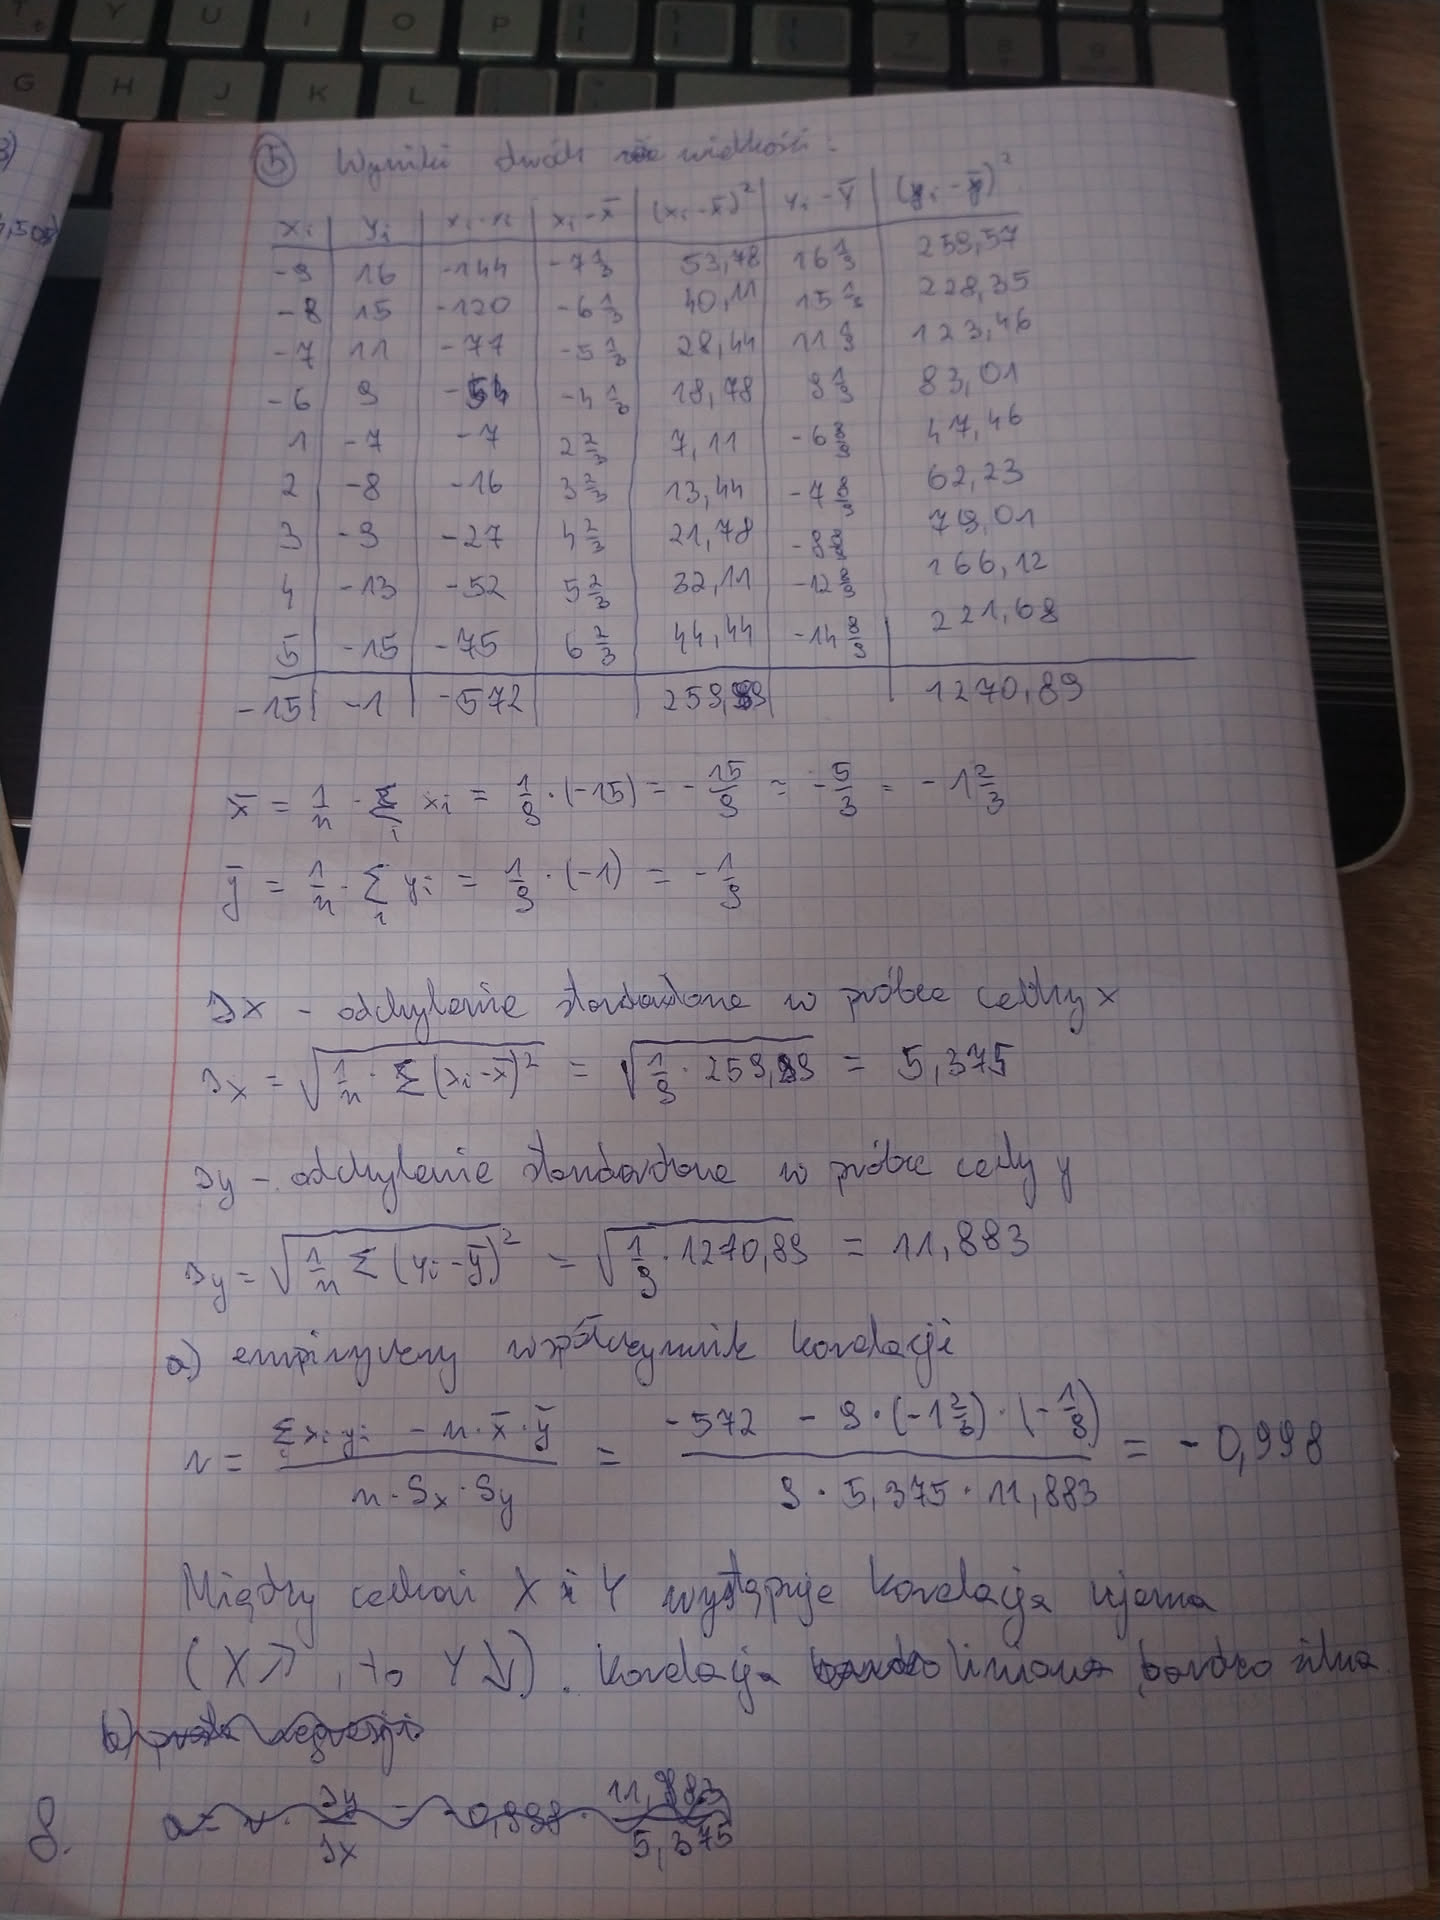 T Y U I O P
7 8 9
G H J K L
3)
,508)
5 Wyniki dwóch wielkości:
xi yi xi·xi xi-x̄ (xi-x̄)² Yi-Ȳ (yi-ȳ)²
-9 16 -144 -7 1/3 53,78 16 1/9 259,57
-8 15 -120 -6 1/3 40,11 15 1/9 228,35
-7 11 -77 -5 1/3 28,44 11 1/9 123,46
-6 9 -54 -4 1/3 18,78 9 1/9 83,01
1 -7 -7 2 2/3 7,11 -6 8/9 47,46
2 -8 -16 3 2/3 13,44 -7 8/9 62,23
3 -9 -27 4 2/3 21,78 -8 8/9 79,01
4 -13 -52 5 2/3 32,11 -12 8/9 166,12
5 -15 -75 6 2/3 44,44 -14 8/9 221,68
-15 -1 -572 259,99 1270,89
x̄ = 1/n · Σi xi = 1/9 · (-15) = -15/9 = -5/3 = -1 2/3
ȳ = 1/n · Σi yi = 1/9 · (-1) = -1/9
Sx - odchylenie standardowe w próbce cechy x
Sx = √(1/n · Σ(xi-x̄)²) = √(1/9 · 259,99) = 5,375
Sy - odchylenie standardowe w próbce cechy y
Sy = √(1/n Σ(yi-ȳ)²) = √(1/9 · 1270,89) = 11,883
a) empiryczny współczynnik korelacji
r = (Σ xi yi - n·x̄·ȳ)/(n·Sx·Sy) = (-572 - 9·(-1 2/3)·(-1/9))/(9·5,375·11,883) = -0,998
Między cechami X i Y występuje korelacja ujemna
(X↗, to Y↘). Korelacja liniowa bardzo silna.
b) prosta regresji
8. a = r · Sy/Sx = -0,998 · 11,883/5,375